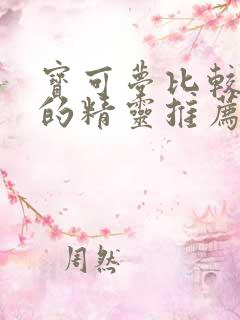 寶可夢比較
的精靈推薦
周然